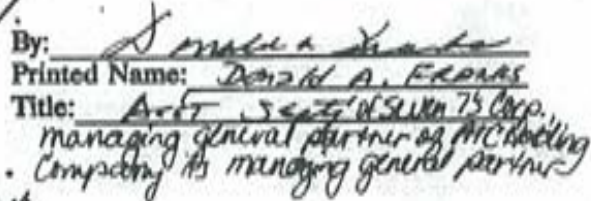 By: Donald A. Franks
Printed Name: Donald A. FRANKS
Title: Asst Secty of Seven 7's Corp.,
managing general partner of Holding
Company its managing general partner